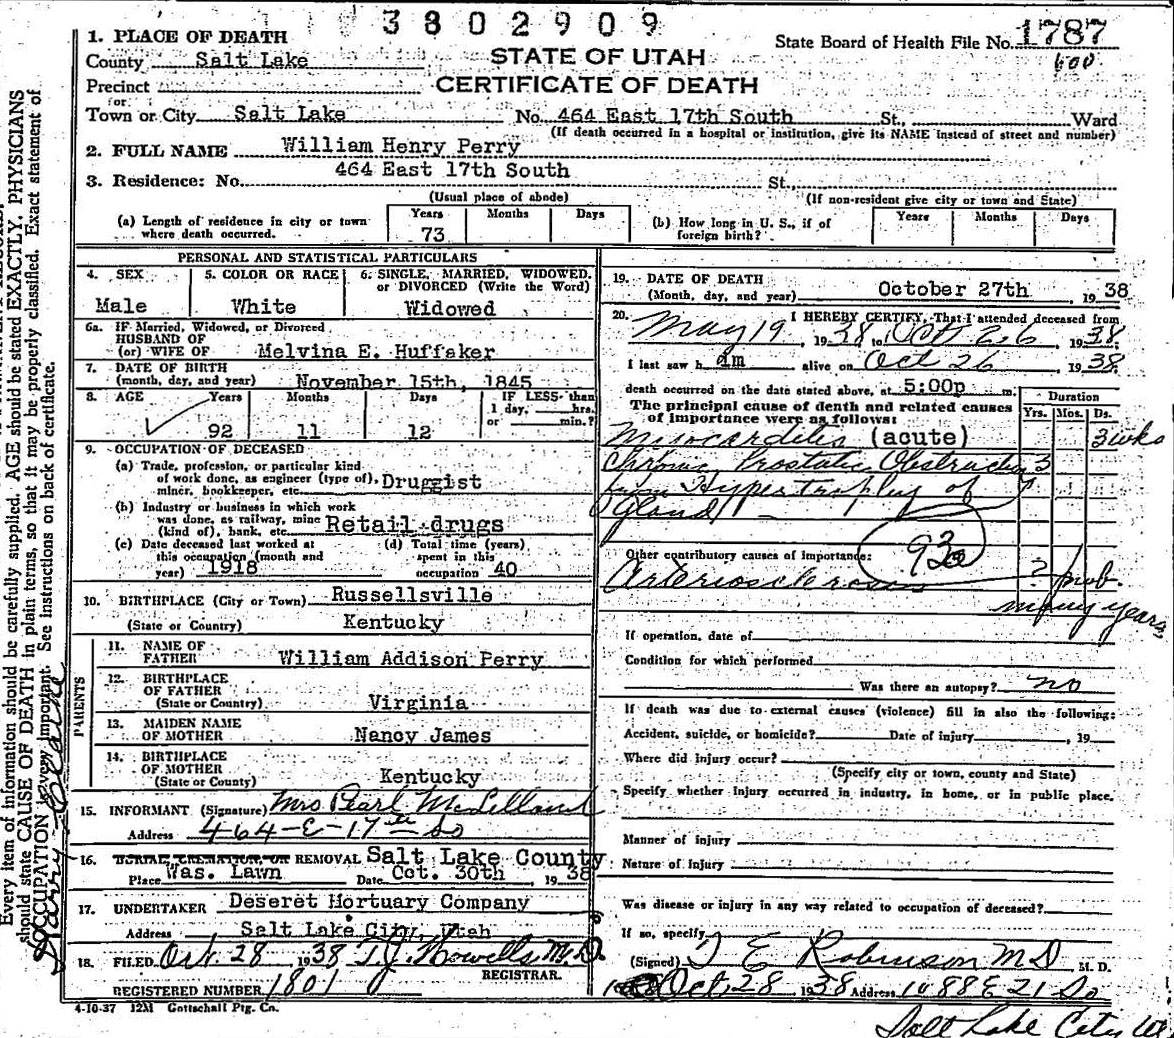 3802909
1. PLACE OF DEATH
State Board of Health File No. 1787
County Salt Lake
STATE OF UTAH
600
Precinct
CERTIFICATE OF DEATH
or
Town or City Salt Lake No. 464 East 17th South St., Ward
(If death occurred in a hospital or institution, give its NAME instead of street and number)
2. FULL NAME William Henry Perry
3. Residence: No. 464 East 17th South St.,
(Usual place of abode) (If non-resident give city or town and State)
(a) Length of residence in city or town where death occurred. Years 73 Months Days
(b) How long in U. S., if of foreign birth? Years Months Days
PERSONAL AND STATISTICAL PARTICULARS
4. SEX Male
5. COLOR OR RACE White
6. SINGLE, MARRIED, WIDOWED, or DIVORCED (Write the Word) Widowed
6a. IF Married, Widowed, or Divorced
HUSBAND OF
(or) WIFE OF Melvina E. Huffaker
7. DATE OF BIRTH
(month, day, and year) November 15th, 1845
8. AGE Years 92 Months 11 Days 12 IF LESS than 1 day, hrs. or min.?
9. OCCUPATION OF DECEASED
(a) Trade, profession, or particular kind
of work done, as engineer (type of), Druggist
miner, bookkeeper, etc.
(b) Industry or business in which work
was done, as railway, mine Retail drugs
(kind of), bank, etc.
(c) Date deceased last worked at this occupation (month and year) 1918
(d) Total time (years) spent in this occupation 40
10. BIRTHPLACE (City or Town) Russellsville
(State or Country) Kentucky
PARENTS
11. NAME OF FATHER William Addison Perry
12. BIRTHPLACE OF FATHER
(State or Country) Virginia
13. MAIDEN NAME OF MOTHER Nancy James
14. BIRTHPLACE OF MOTHER
(State or County) Kentucky
15. INFORMANT (Signature) Mrs Pearl McLelland
Address 464-E-17th So
16. BURIAL, CREMATION, OR REMOVAL Salt Lake County
Place Was. Lawn Date Oct. 30th 1938
17. UNDERTAKER Deseret Mortuary Company
Address Salt Lake City, Utah
18. FILED Oct. 28 1938 T. J. Howells M.D.
REGISTRAR.
REGISTERED NUMBER 1801
4-10-37 12M Gottschall Ptg. Co.
19. DATE OF DEATH
(Month, day, and year) October 27th, 1938
20. I HEREBY CERTIFY, That I attended deceased from
May 19, 1938 to Oct 26, 1938
I last saw him alive on Oct 26, 1938
death occurred on the date stated above, at 5:00p m.
Duration
The principal cause of death and related causes Yrs. Mos. Ds.
of importance were as follows:
Miocarditis (acute) 3 wks
Chronic Prostatic Obstruction 3
from Hypertrophy of
Gland
93
Other contributory causes of importance:
Arteriosclerosis ? prob.
many years
If operation, date of
Condition for which performed
Was there an autopsy? no
If death was due to external causes (violence) fill in also the following:
Accident, suicide, or homicide? Date of injury, 19
Where did injury occur?
(Specify city or town, county and State)
Specify whether injury occurred in industry, in home, or in public place.
Manner of injury
Nature of injury
Was disease or injury in any way related to occupation of deceased?
If so, specify
(Signed) T E Robinson MD M. D.
Oct. 28 1938 Address 1088 E 21 So
Salt Lake City
Every item of information should be carefully supplied. AGE should be stated EXACTLY. PHYSICIANS
should state CAUSE OF DEATH in plain terms, so that it may be properly classified. Exact statement of
OCCUPATION is very important. See instructions on back of certificate.